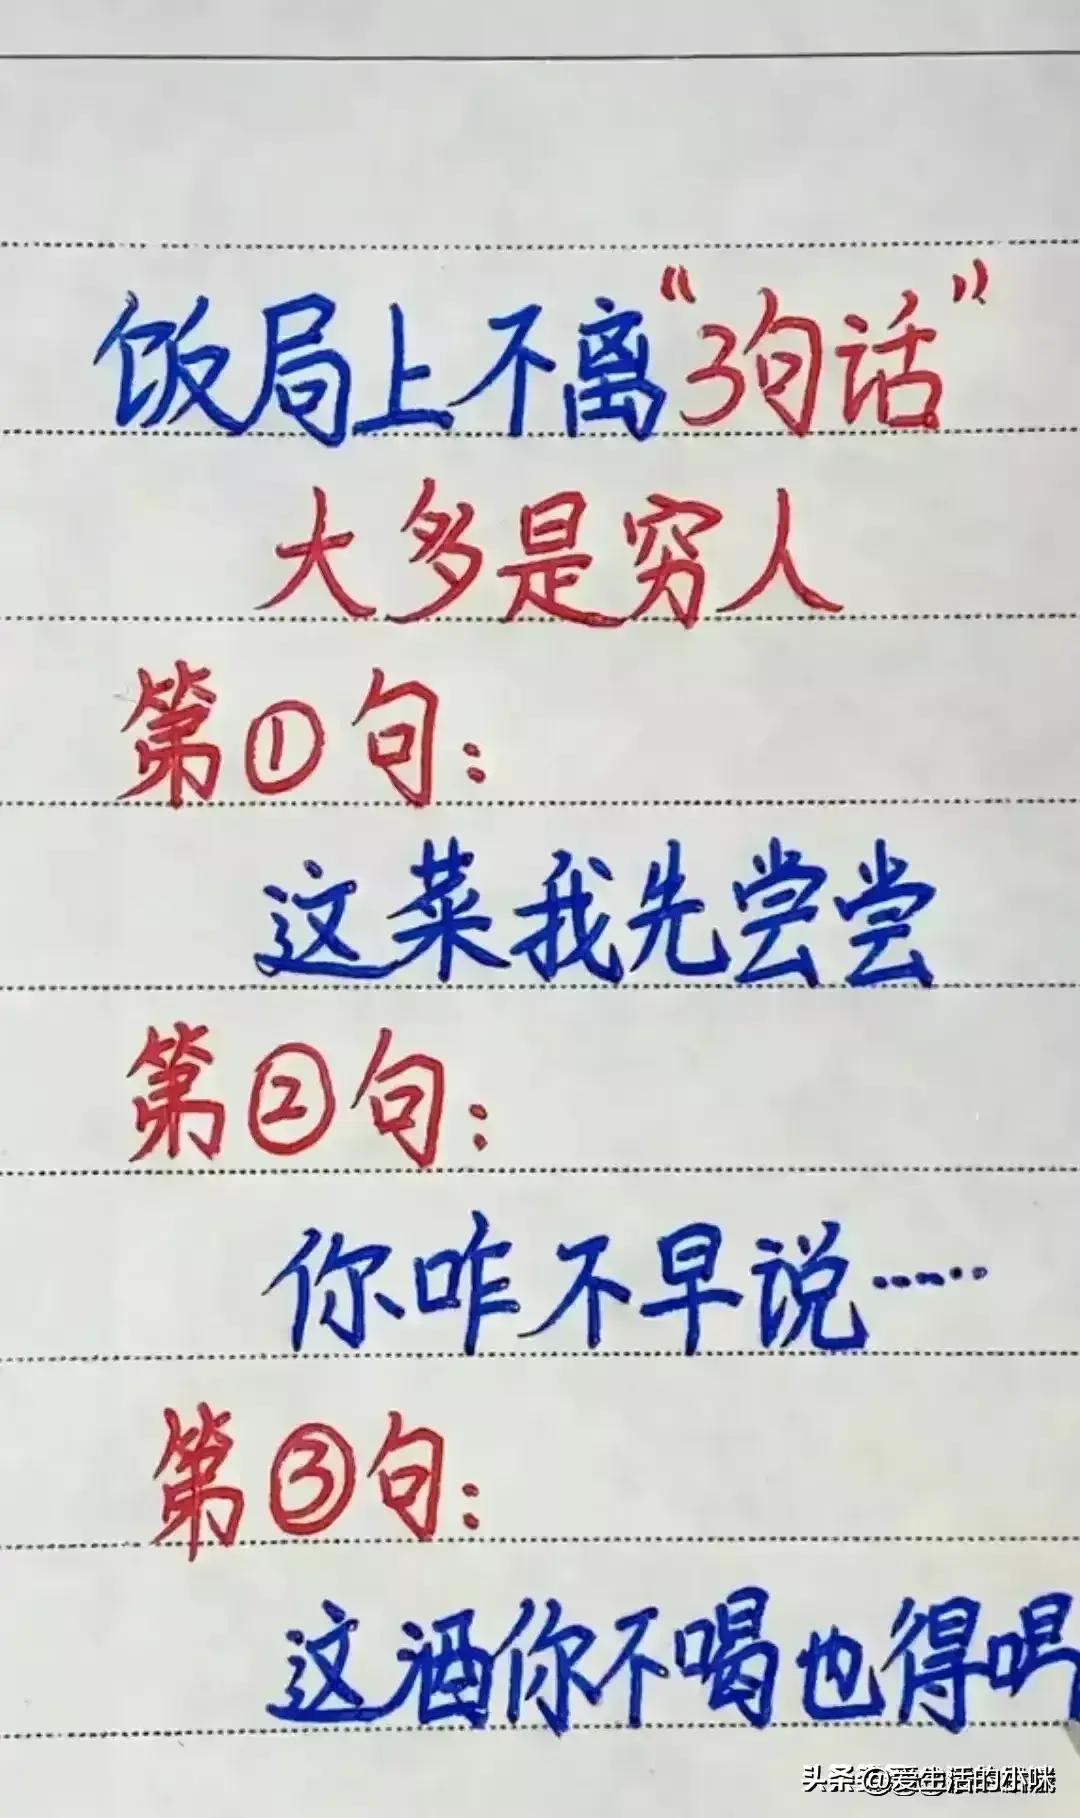 饭局上不离“3句话”
大多是穷人
第①句：
这菜我先尝尝
第②句：
你咋不早说……
第③句：
这酒你不喝也得喝
头条 @爱生活的小咪